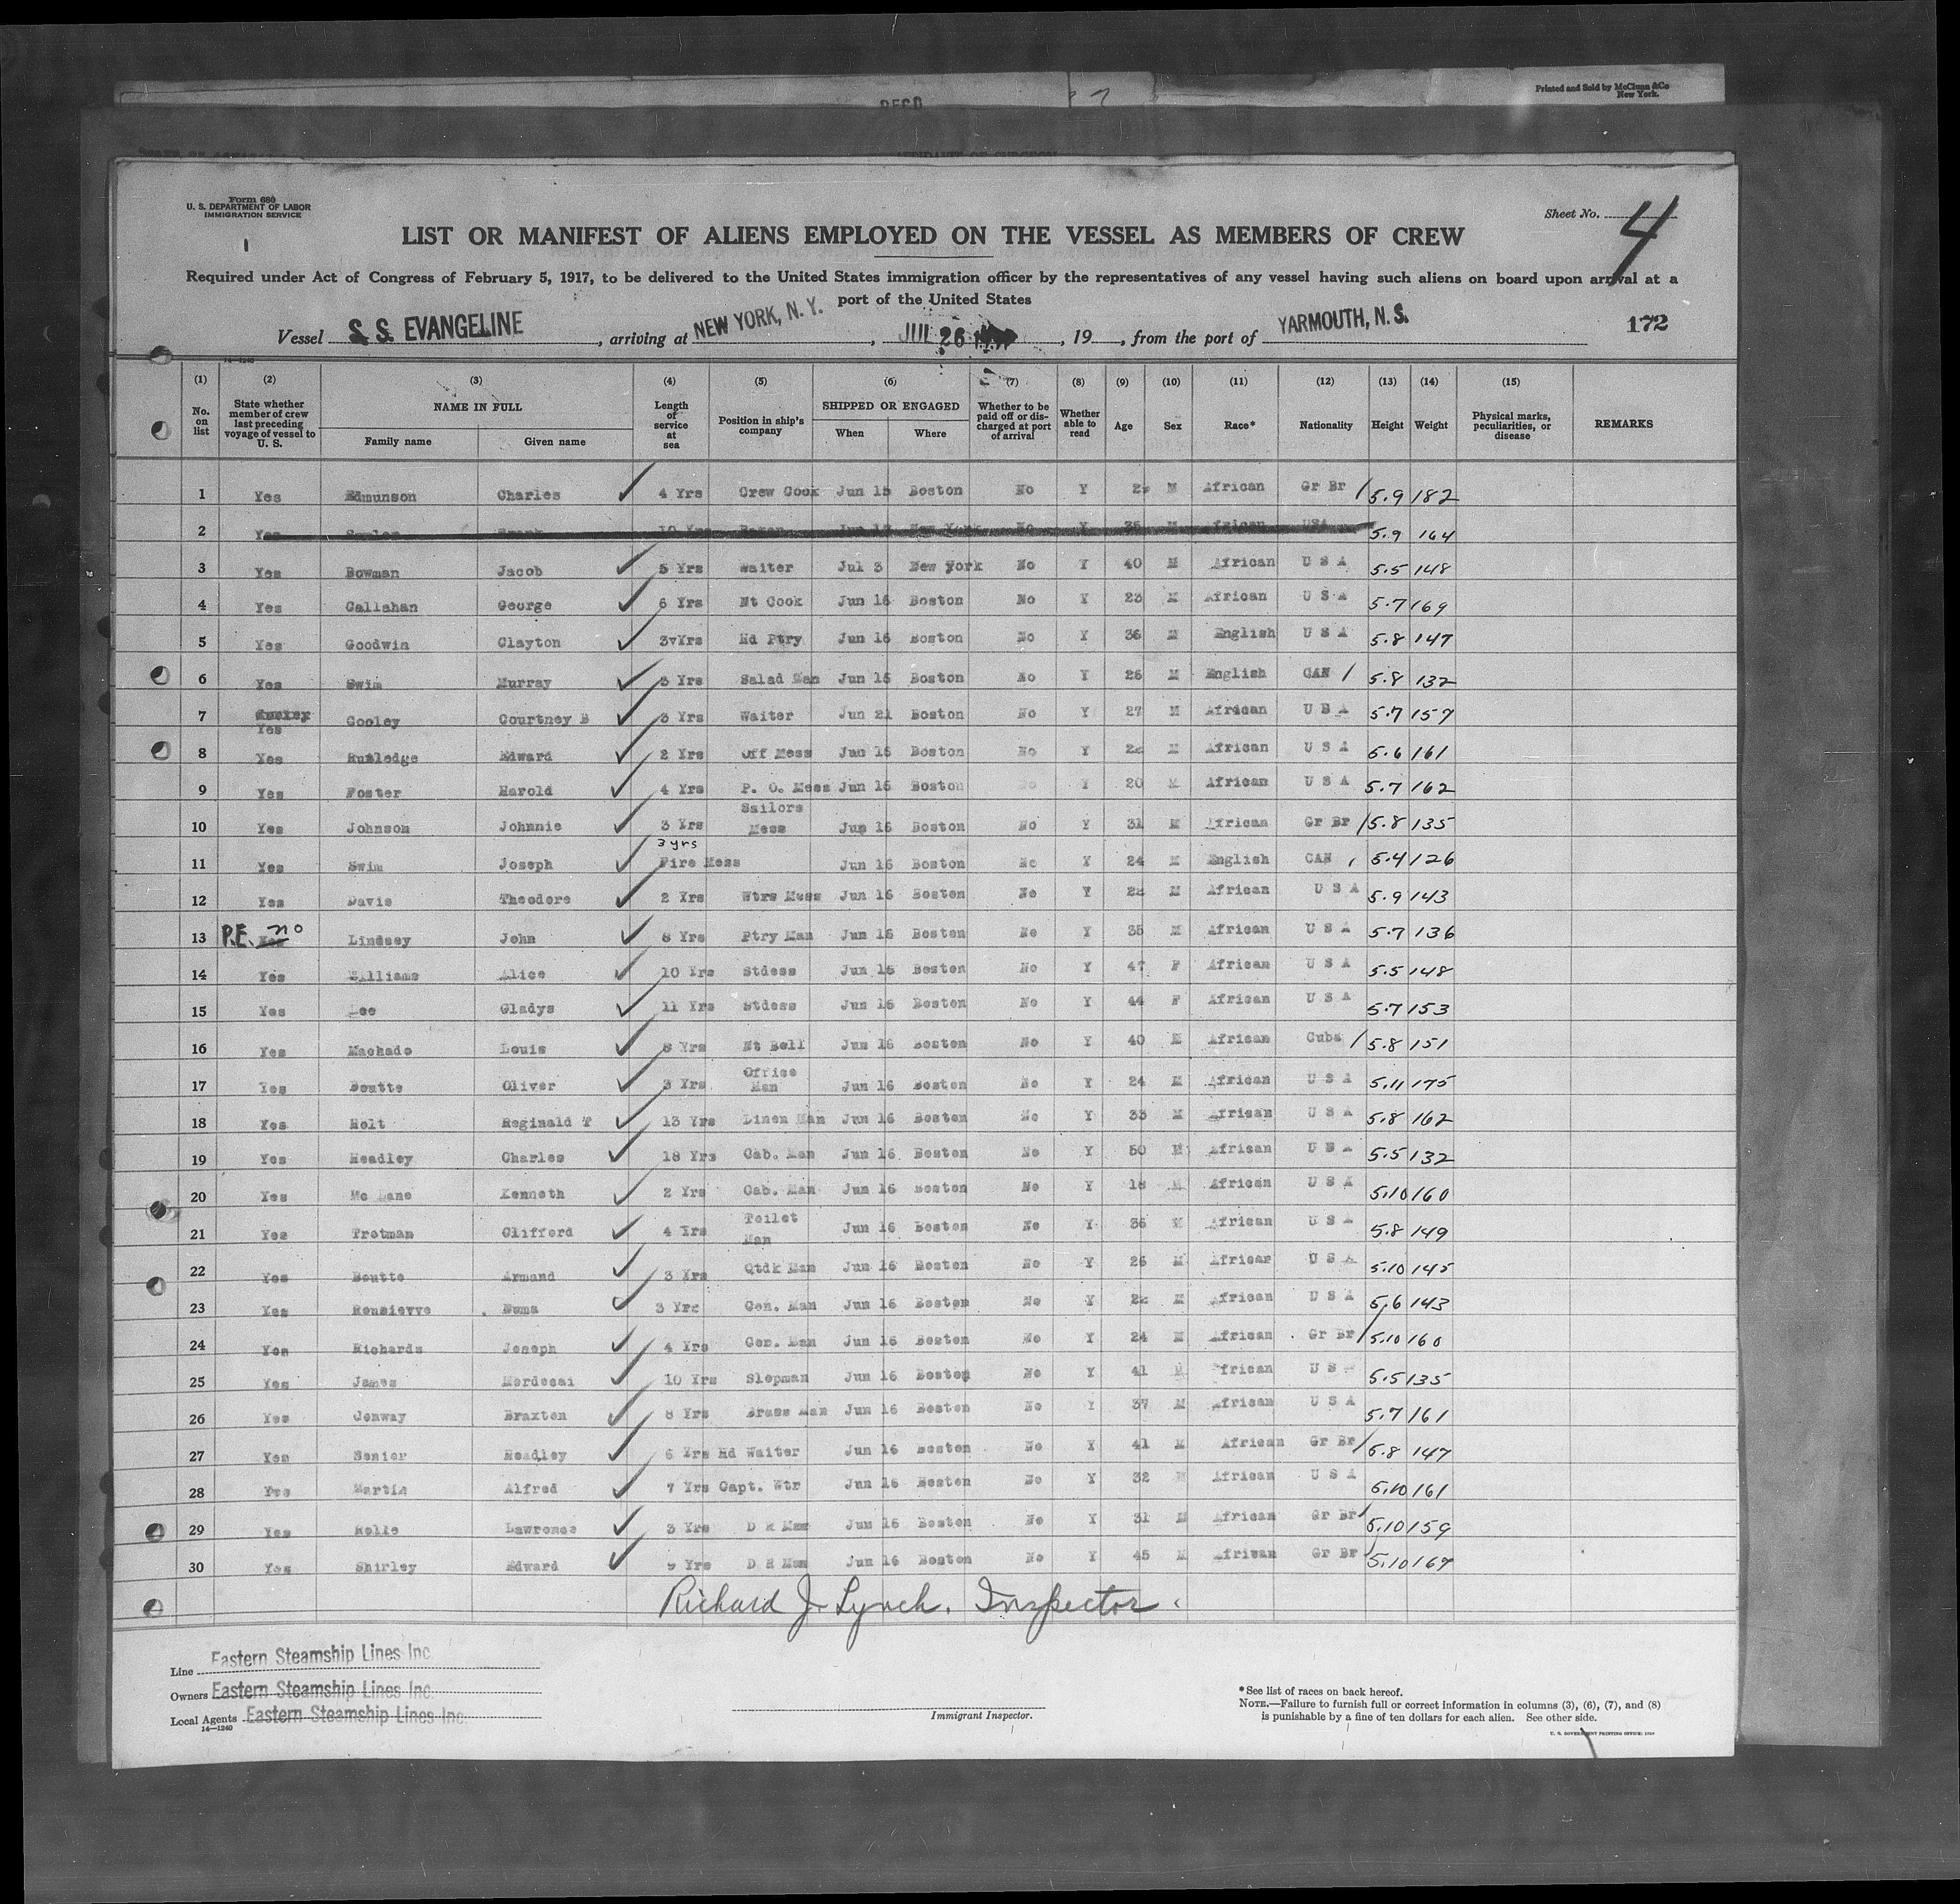 Printed and Sold by McClunn & Co
New York.
Form 680
U. S. DEPARTMENT OF LABOR
IMMIGRATION SERVICE
Sheet No. 4
LIST OR MANIFEST OF ALIENS EMPLOYED ON THE VESSEL AS MEMBERS OF CREW
Required under Act of Congress of February 5, 1917, to be delivered to the United States immigration officer by the representatives of any vessel having such aliens on board upon arrival at a
port of the United States
Vessel S. S. EVANGELINE, arriving at NEW YORK, N. Y., JUL 26, 19, from the port of YARMOUTH, N. S. 172
14-1240
(1) (2) (3) (4) (5) (6) (7) (8) (9) (10) (11) (12) (13) (14) (15)
No. on list State whether member of crew last preceding voyage of vessel to U. S. NAME IN FULL Family name Given name Length of service at sea Position in ship's company SHIPPED OR ENGAGED When Where Whether to be paid off or discharged at port of arrival Whether able to read Age Sex Race* Nationality Height Weight Physical marks, peculiarities, or disease REMARKS
1 Yes Edmunson Charles 4 Yrs Crew Cook Jun 15 Boston No Y M African Gr Br 5.9 182
2 Yes 10 Yrs New York No Y 35 M African USA 5.9 164
3 Yes Bowman Jacob 5 Yrs Waiter Jul 3 New York No Y 40 M African U S A 5.5 148
4 Yes Callahan George 6 Yrs Nt Cook Jun 16 Boston No Y 23 M African U S A 5.7 169
5 Yes Goodwin Clayton 3 Yrs Hd Ptry Jun 16 Boston No Y 36 M English U S A 5.8 147
6 Yes Swim Murray 3 Yrs Salad Man Jun 16 Boston No Y 26 M English CAN 5.8 132
7 Yes Cooley Courtney B 3 Yrs Waiter Jun 21 Boston No Y 27 M African U S A 5.7 157
8 Yes Rutledge Edward 2 Yrs Off Mess Jun 16 Boston No Y M African U S A 5.6 161
9 Yes Foster Harold 4 Yrs P. O. Mess Jun 16 Boston No Y 20 M African U S A 5.7 162
10 Yes Johnson Johnnie 3 Yrs Sailors Mess Jun 16 Boston No Y 31 M African Gr Br 5.8 135
11 Yes Swim Joseph 3 yrs Fire Mess Jun 16 Boston No Y 24 M English CAN 5.4 126
12 Yes Davis Theodore 2 Yrs Wtrs Mess Jun 16 Boston No Y 22 M African U S A 5.9 143
13 P.E. Yes no Lindsey John 8 Yrs Ptry Man Jun 16 Boston No Y 35 M African U S A 5.7 136
14 Yes Williams Alice 10 Yrs Stdess Jun 16 Boston No Y 47 F African U S A 5.5 148
15 Yes Lee Gladys 11 Yrs Stdess Jun 16 Boston No Y 44 F African U S A 5.7 153
16 Yes Machado Louis 8 Yrs Nt Bell Jun 16 Boston No Y 40 M African Cuba 5.8 151
17 Yes Boutte Oliver 3 Yrs Office Man Jun 16 Boston No Y 24 M African U S A 5.11 175
18 Yes Holt Reginald T 13 Yrs Linen Man Jun 16 Boston No Y 33 M African U S A 5.8 162
19 Yes Headley Charles 18 Yrs Cab. Man Jun 16 Boston No Y 50 M African U S A 5.5 132
20 Yes Mc Lane Kenneth 2 Yrs Cab. Man Jun 16 Boston No Y 18 M African U S A 5.10 160
21 Yes Trotman Clifford 4 Yrs Toilet Man Jun 16 Boston No Y 36 M African U S A 5.8 149
22 Yes Boutte Armand 3 Yrs Qtdk Man Jun 16 Boston No Y 26 M African U S A 5.10 145
23 Yes Numa 3 Yrs Gen. Man Jun 16 Boston No Y 22 M African U S A 5.6 143
24 Yes Richards Joseph 4 Yrs Gen. Man Jun 16 Boston No Y 24 M African Gr Br 5.10 160
25 Yes James Mordecai 10 Yrs Slopman Jun 16 Boston No Y 41 M African U S 5.5 135
26 Yes Conway Braxton 8 Yrs Brass Man Jun 16 Boston No Y 37 M African U S A 5.7 161
27 Yes Senior Headley 6 Yrs Hd Waiter Jun 16 Boston No Y 41 M African Gr Br 5.8 147
28 Yes Martin Alfred 7 Yrs Capt. Wtr Jun 16 Boston No Y 32 M African U S A 5.10 161
29 Yes Rolle Lawrence 3 Yrs D R Man Jun 16 Boston No Y 31 M African Gr Br 5.10 159
30 Yes Shirley Edward 9 Yrs D R Man Jun 16 Boston No Y 45 M African Gr Br 5.10 167
Richard J. Lynch. Inspector.
Line Eastern Steamship Lines Inc.
Owners Eastern Steamship Lines Inc.
Local Agents Eastern Steamship Lines Inc.
14-1240
Immigrant Inspector.
*See list of races on back hereof.
NOTE.—Failure to furnish full or correct information in columns (3), (6), (7), and (8)
is punishable by a fine of ten dollars for each alien. See other side.
U. S. GOVERNMENT PRINTING OFFICE